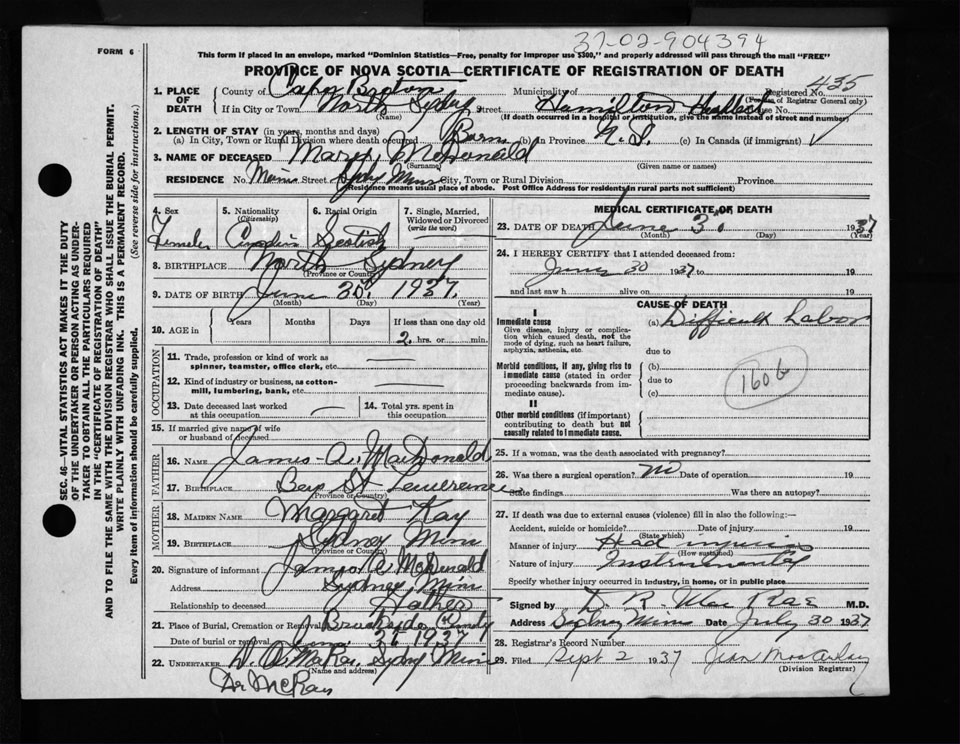 37-02-904394
FORM 6
This form if placed in an envelope, marked "Dominion Statistics—Free, penalty for improper use $300," and properly addressed will pass through the mail "FREE"
PROVINCE OF NOVA SCOTIA—CERTIFICATE OF REGISTRATION OF DEATH
1. PLACE OF DEATH County of Cape Breton Municipality of Registered No. 435
(For use of Registrar General only)
If in City or Town North Sydney Street Hamilton House No.
(Name) (If death occurred in a hospital or institution, give the name instead of street and number)
2. LENGTH OF STAY (in years, months and days)
(a) In City, Town or Rural Division where death occurred Born (b) in Province N.S. (c) In Canada (if immigrant)
3. NAME OF DECEASED Mary McDonald
(Surname) (Given name or names)
RESIDENCE No. Main Street Sydney Mines City, Town or Rural Division Province
(Residence means usual place of abode. Post Office Address for residents in rural parts not sufficient)
4. Sex 5. Nationality (Citizenship) 6. Racial Origin 7. Single, Married, Widowed or Divorced (write the word)
Female Scotish
8. BIRTHPLACE North Sydney
(Province or Country)
9. DATE OF BIRTH June 30 1937
(Month) (Day) (Year)
10. AGE in Years Months Days If less than one day old
2 hrs. or min.
OCCUPATION
11. Trade, profession or kind of work as spinner, teamster, office clerk, etc.
12. Kind of industry or business, as cotton-mill, lumbering, bank, etc.
13. Date deceased last worked at this occupation 14. Total yrs. spent in this occupation
15. If married give name of wife or husband of deceased
FATHER
16. NAME James A. MacDonald
17. BIRTHPLACE Bay St Lewerence
(Province or Country)
MOTHER
18. MAIDEN NAME Margaret Kay
19. BIRTHPLACE Sydney Mines
(Province or Country)
20. Signature of informant James A McDonald
Address Sydney Mines
Relationship to deceased Father
21. Place of Burial, Cremation or Removal Brookside
Date of burial or removal 1937
22. UNDERTAKER Sydney Mines
(Name and address)
Dr McRay
MEDICAL CERTIFICATE OF DEATH
23. DATE OF DEATH June 30 1937
(Month) (Day) (Year)
24. I HEREBY CERTIFY that I attended deceased from:
June 30 1937 to 19
and last saw h alive on 19
CAUSE OF DEATH
I
Immediate cause (a) Difficult Labor
Give disease, injury or complication which caused death, not the mode of dying, such as heart failure, asphyxia, asthenia, etc. due to
Morbid conditions, if any, giving rise to immediate cause (stated in order proceeding backwards from immediate cause). (b) due to (c)
160b
II
Other morbid conditions (if important) contributing to death but not causally related to immediate cause.
25. If a woman, was the death associated with pregnancy?
26. Was there a surgical operation? No Date of operation 19
State findings Was there an autopsy?
27. If death was due to external causes (violence) fill in also the following:—
Accident, suicide or homicide? Date of injury 19
(State which)
Manner of injury Head injuries
(How sustained)
Nature of injury Instrumental
Specify whether injury occurred in industry, in home, or in public place
Signed by D. R. MacRae M.D.
Address Sydney Mines Date July 30 1937
28. Registrar's Record Number
29. Filed Sept 2 1937 Jean
(Division Registrar)
SEC. 46—VITAL STATISTICS ACT MAKES IT THE DUTY OF THE UNDERTAKER OR PERSON ACTING AS UNDERTAKER TO OBTAIN ALL THE PARTICULARS REQUIRED IN THE "CERTIFICATE OF REGISTRATION OF DEATH"
AND TO FILE THE SAME WITH THE DIVISION REGISTRAR WHO SHALL ISSUE THE BURIAL PERMIT.
WRITE PLAINLY WITH UNFADING INK. THIS IS A PERMANENT RECORD.
Every item of information should be carefully supplied. (See reverse side for instructions.)